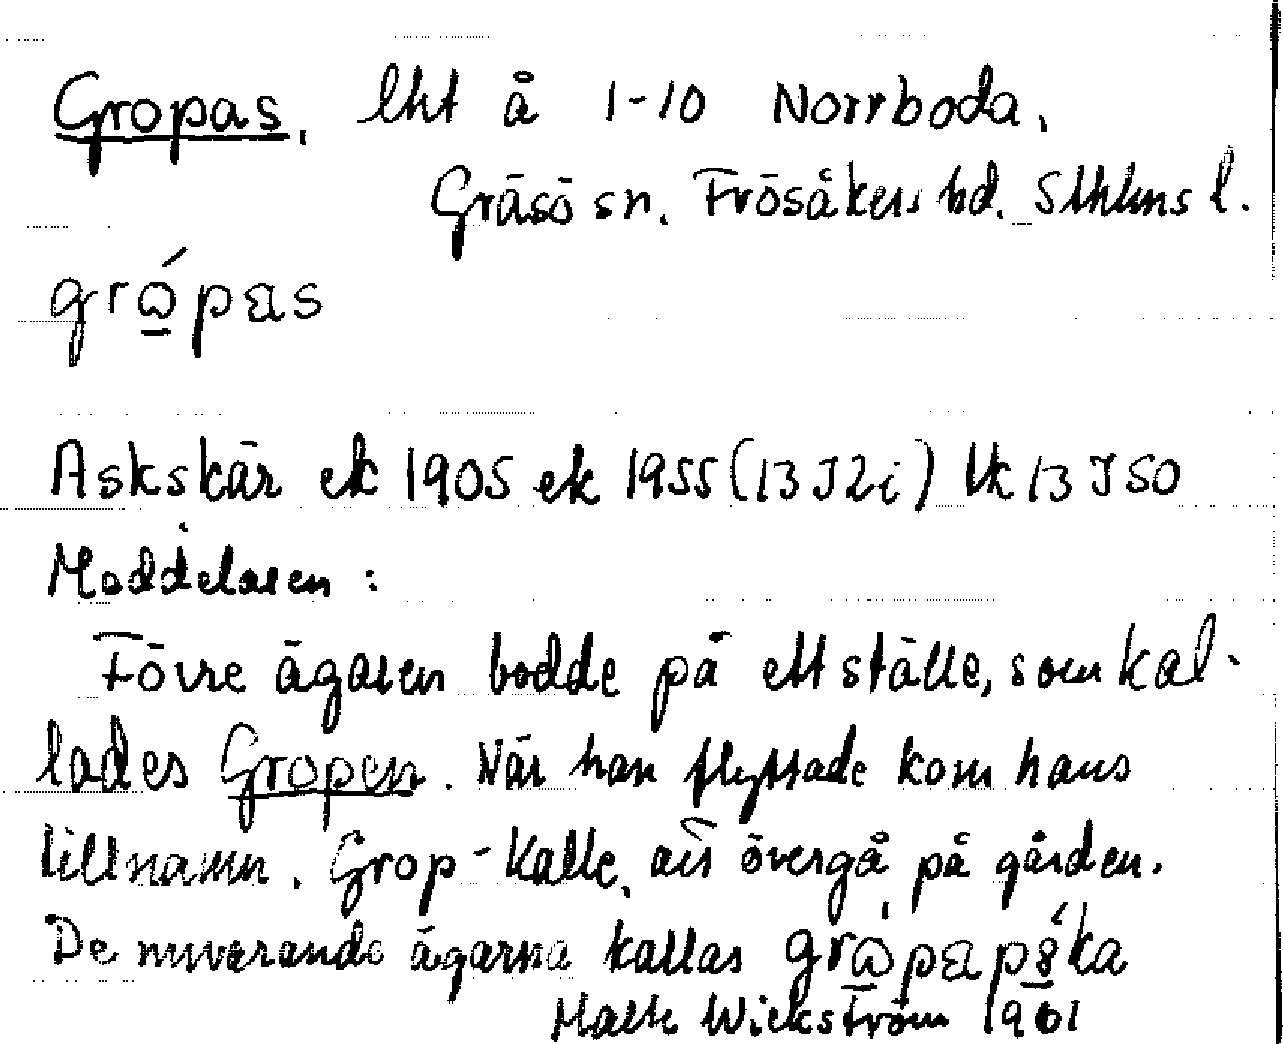 Gropas, lht å 1-10 Norrboda,
Gräsö sn. Frösåkers hd. Sthlms l.
Askskär ek 1905 ek 1955 (13 I 2 i) tk 13 I SO
Meddelaren:
Förre ägaren bodde på ett ställe, som kal-
lades Gropen. När han flyttade kom hans
tillnamn, Grop-Kalle, att övergå på gården.
De nuvarande ägarna kallas
Wickström 1961